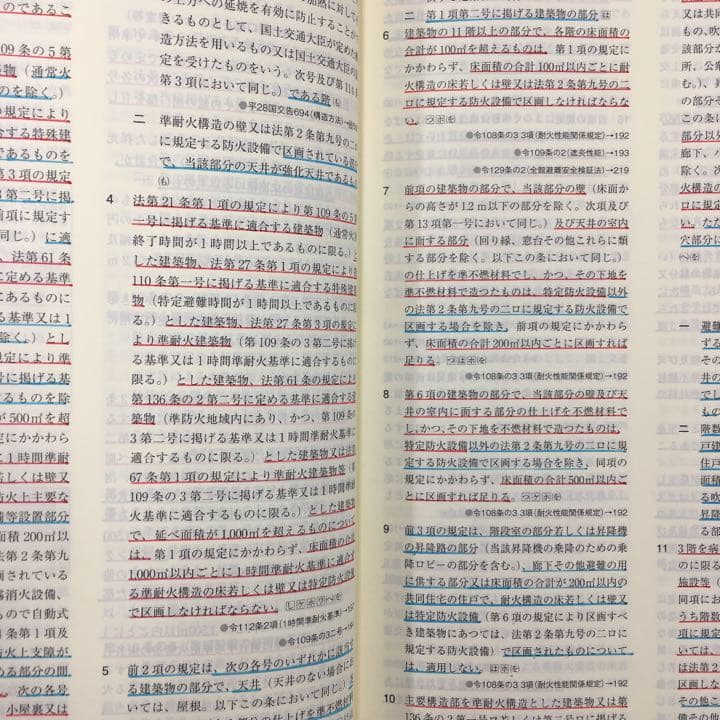 のであるこ
109条の5第
築物(通常火
ものを除く。)
の規定により
合する特殊建
であるものを
3第二号に掲
前項に規定す
同じ。)に適
法第61条
に定める基準
あるものに
る基準又は1
除く。)とし
規定により準
に掲げる基
ものを除
が500㎡を超
にかかわら
に1時間準耐
若しくは壁又
火上主要な
備等設置部分
面積200㎡以
建築物
法第2条第九
消火設備、
もので自動式
4条第1項及
上支障が
める部分の間
次の各号
小屋裏又は
の加熱に対して
の上方への延焼を有効に防止することが
きるものとして、国土交通大臣が定めた構
造方法を用いるもの又は国土交通大臣の
定を受けたものをいう。次号及び第114
第3項において同じ。)である階
●平28国交告694(構造方法)→
二 準耐火構造の壁又は法第2条第九号の二ロ
に規定する防火設備で区画されている部分
で、当該部分の天井が強化天井であるもの
4 法第21条第1項の規定により第109条の5
一号に掲げる基準に適合する建築物(通常火
終了時間が1時間以上であるものに限る。)
とした建築物、法第27条第1項の規定により
110条第一号に掲げる基準に適合する特殊建
物(特定避難時間が1時間以上であるものに
る。)とした建築物、法第27条第3項の規定
より準耐火建築物(第109条の3第二号に掲げ
る基準又は1時間準耐火基準に適合するものに
限る。)とした建築物、法第61条の規定により
第136条の2第二号に定める基準に適合する建築
物(準防火地域内にあり、かつ、第109条の
3第二号に掲げる基準又は1時間準耐火基準に
適合するものに限る。)とした建築物又は法第
67条第1項の規定により準耐火建築物等(第
109条の3第二号に掲げる基準又は1時間準耐
火基準に適合するものに限る。)とした建築物
で、延べ面積が1,000㎡を超えるものについて
は、第1項の規定にかかわらず、床面積の合計
1,000㎡以内ごとに1時間準耐火基準に適合す
る準耐火構造の床若しくは壁又は特定防火設備
で区画しなければならない。
●令112条2項(1時間準耐火基準)→
●令109条の3二号→
5 前2項の規定は、次の各号のいずれかに該当す
る建築物の部分で、天井(天井のない場合にお
いては、屋根。以下この条において同じ。)
二 第1項第二号に掲げる建築物の部分
6 建築物の11階以上の部分で、各階の床面積の
合計が100㎡を超えるものは、第1項の規定に
かかわらず、床面積の合計100㎡以内ごとに耐
火構造の床若しくは壁又は法第2条第九号の二
ロに規定する防火設備で区画しなければならな
い。
●令108条の3 3項(耐火性能関係規定)→192
●令109条の2(遮炎性能)→193
●令129条の2(全館避難安全検証法)→219
7 前項の建築物の部分で、当該部分の壁(床面か
らの高さが1.2m以下の部分を除く。次項及び
第13項第一号において同じ。)及び天井の室内
に面する部分(回り縁、窓台その他これらに類
する部分を除く。以下この条において同じ。)
の仕上げを準不燃材料でし、かつ、その下地を
準不燃材料で造つたものは、特定防火設備以外
の法第2条第九号の二ロに規定する防火設備で
区画する場合を除き、前項の規定にかかわら
ず、床面積の合計200㎡以内ごとに区画すれば
足りる。
●令108条の3 3項(耐火性能関係規定)→192
8 第6項の建築物の部分で、当該部分の壁及び天
井の室内に面する部分の仕上げを不燃材料で
し、かつ、その下地を不燃材料で造つたものは、
特定防火設備以外の法第2条第九号の二ロに規
定する防火設備で区画する場合を除き、同項の
規定にかかわらず、床面積の合計500㎡以内ご
とに区画すれば足りる。
●令108条の3 3項(耐火性能関係規定)→192
9 前3項の規定は、階段室の部分若しくは昇降機
の昇降路の部分(当該昇降機の乗降のための乗
降ロビーの部分を含む。)、廊下その他避難の用
に供する部分又は床面積の合計が200㎡以内の
共同住宅の住戸で、耐火構造の床若しくは壁又
は特定防火設備(第6項の規定により区画すべ
き建築物にあつては、法第2条第九号の二ロに
規定する防火設備)で区画されたものについて
は、適用しない。
●令108条の3 3項(耐火性能関係規定)→192
10 主要構造部を準耐火構造とした建築物又は第
一 避難
二 階数
11 3階を病
施設等(